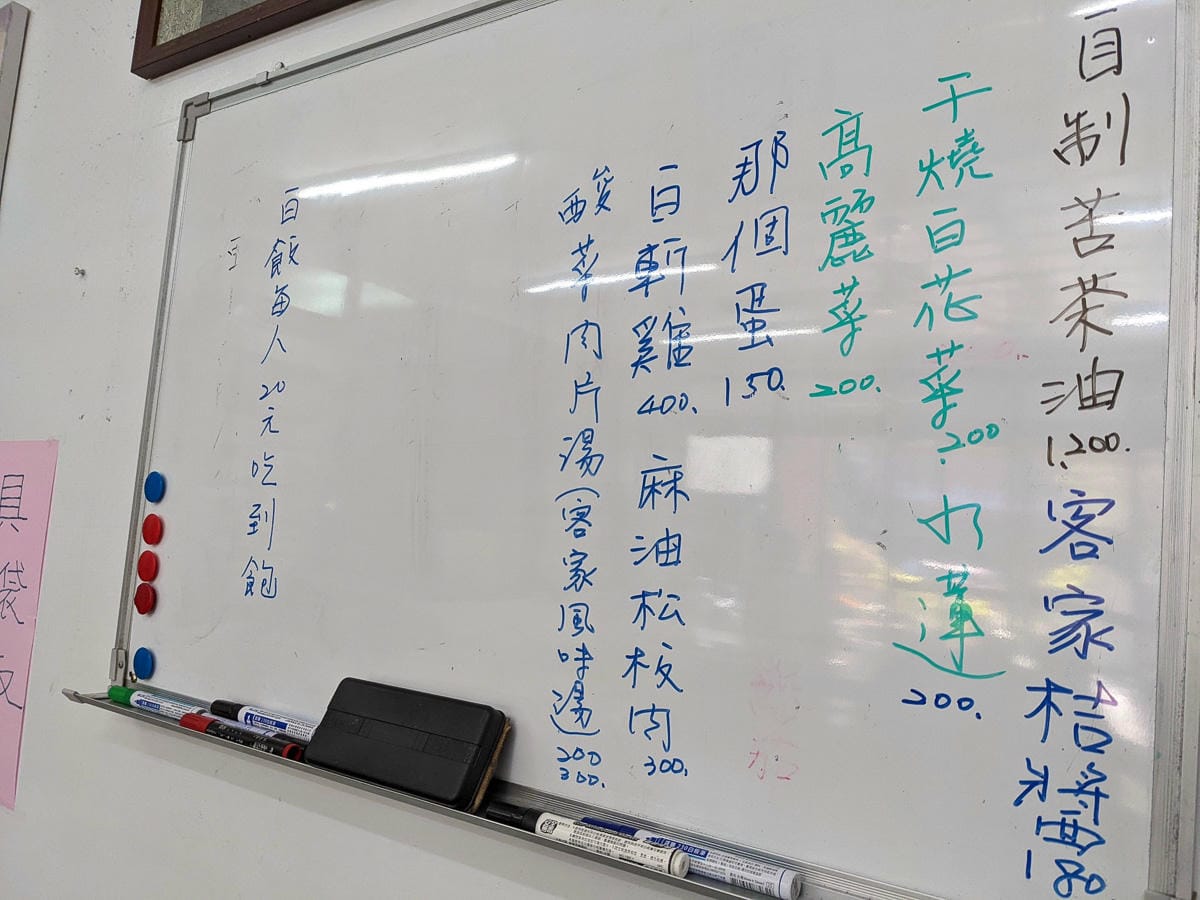 自制苦茶油 1,200. 客家桔醬 180
干燒白花菜 200 水蓮 200.
高麗菜 200.
那個蛋 150.
白斬雞 400. 麻油松板肉 300.
酸菜肉片湯(客家風味湯) 200 300.
白飯每人20元吃到飽
具
袋